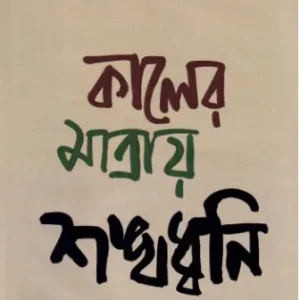 কালের
মাত্রায়
শঙ্খধ্বনি